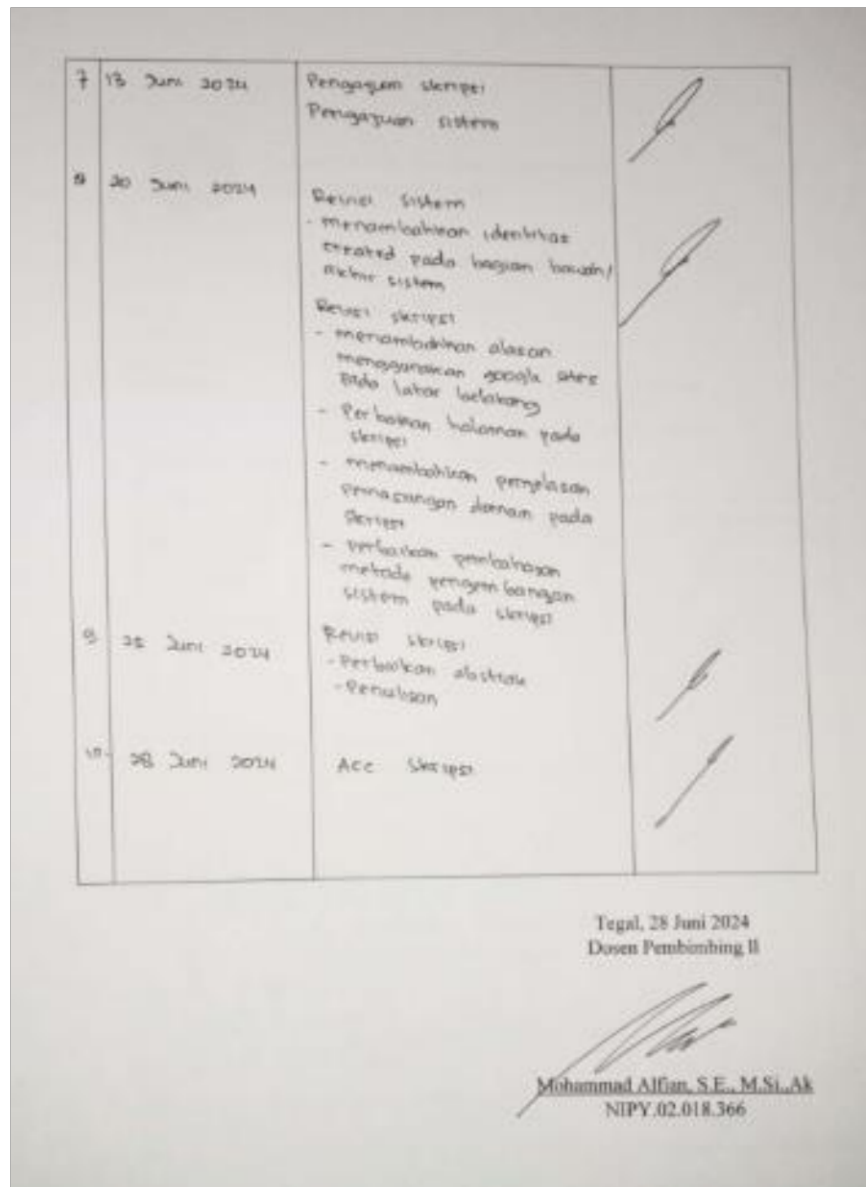 7 13 Juni 2024 Pengajuan skripsi
Pengajuan sistem
8 20 Juni 2024 Revisi sistem
- menambahkan identitas
created pada bagian bawah/
akhir sistem
Revisi skripsi
- menambahkan alasan
menggunakan google sites
pada latar belakang
- Perbaikan halaman pada
skripsi
- menambahkan penjelasan
pemasangan domain pada
skripsi
- perbaikan pembahasan
metode pengembangan
sistem pada skripsi
9. 25 Juni 2024 Revisi skripsi
- Perbaikan abstrak
- Penulisan
10. 28 Juni 2024 Acc Skripsi
Tegal, 28 Juni 2024
Dosen Pembimbing II
Mohammad Alfian, S.E., M.Si.,Ak
NIPY.02.018.366